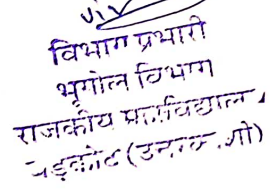 विभाग प्रभारी
भूगोल विभाग
राजकीय महाविद्यालय
बड़कोट (उत्तरकाशी)